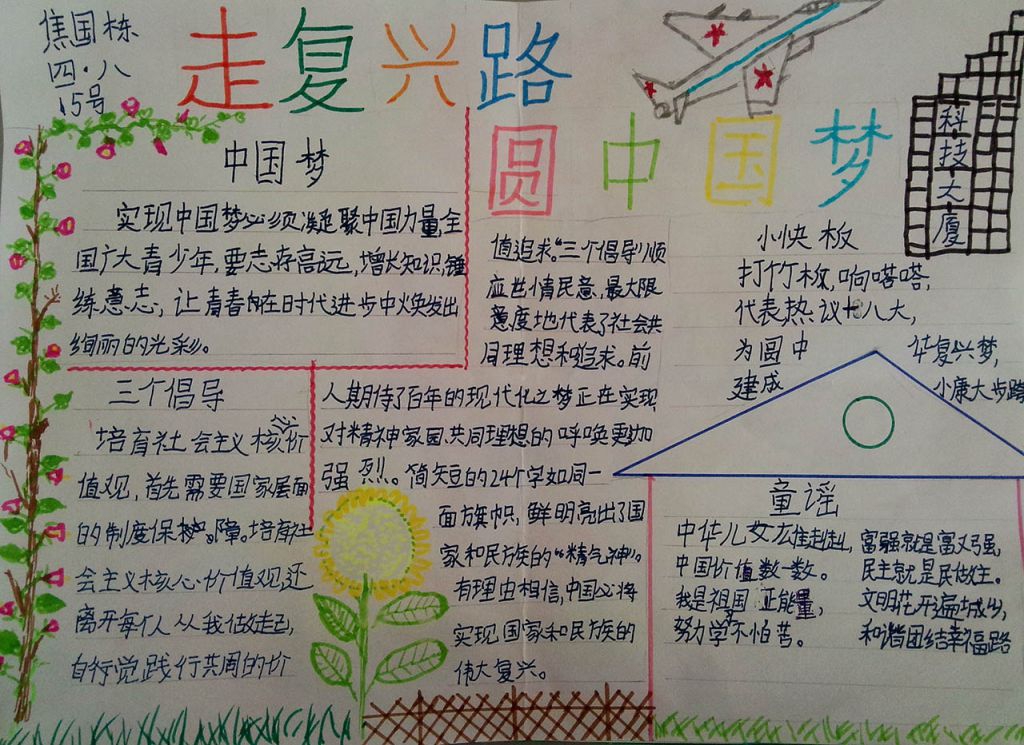 焦国栋
四·八
15号
走复兴路
圆中国梦
科技大厦
中国梦
实现中国梦必须凝聚中国力量,全
国广大青少年,要志存高远,增长知识,锤
练意志,让青春在时代进步中焕发出
绚丽的光彩。
三个倡导
培育社会主义核心价
值观,首先需要国家层面
的制度保障。培育社
会主义核心价值观,还
离开每个人从我做起,
自行觉践行共同的价
值追求。“三个倡导”顺
应世情民意,最大限
意度地代表了社会共
同理想和追求。前
人期待了百年的现代化之梦正在实现
对精神家园、共同理想的呼唤更加
强烈。简短的24个字如同一
面旗帜,鲜明亮出了国
家和民族的“精气神”。
有理由相信,中国必将
实现国家和民族的
伟大复兴。
小快板
打竹板,响嗒嗒,
代表热议十八大,
为圆中华复兴梦,
建成小康大步跨
童谣
中华儿女
中国价值数一数。
我是祖国正能量,
努力学不怕苦。
富强就是富又强,
民主就是民做主。
文明花开遍城乡,
和谐团结幸福路